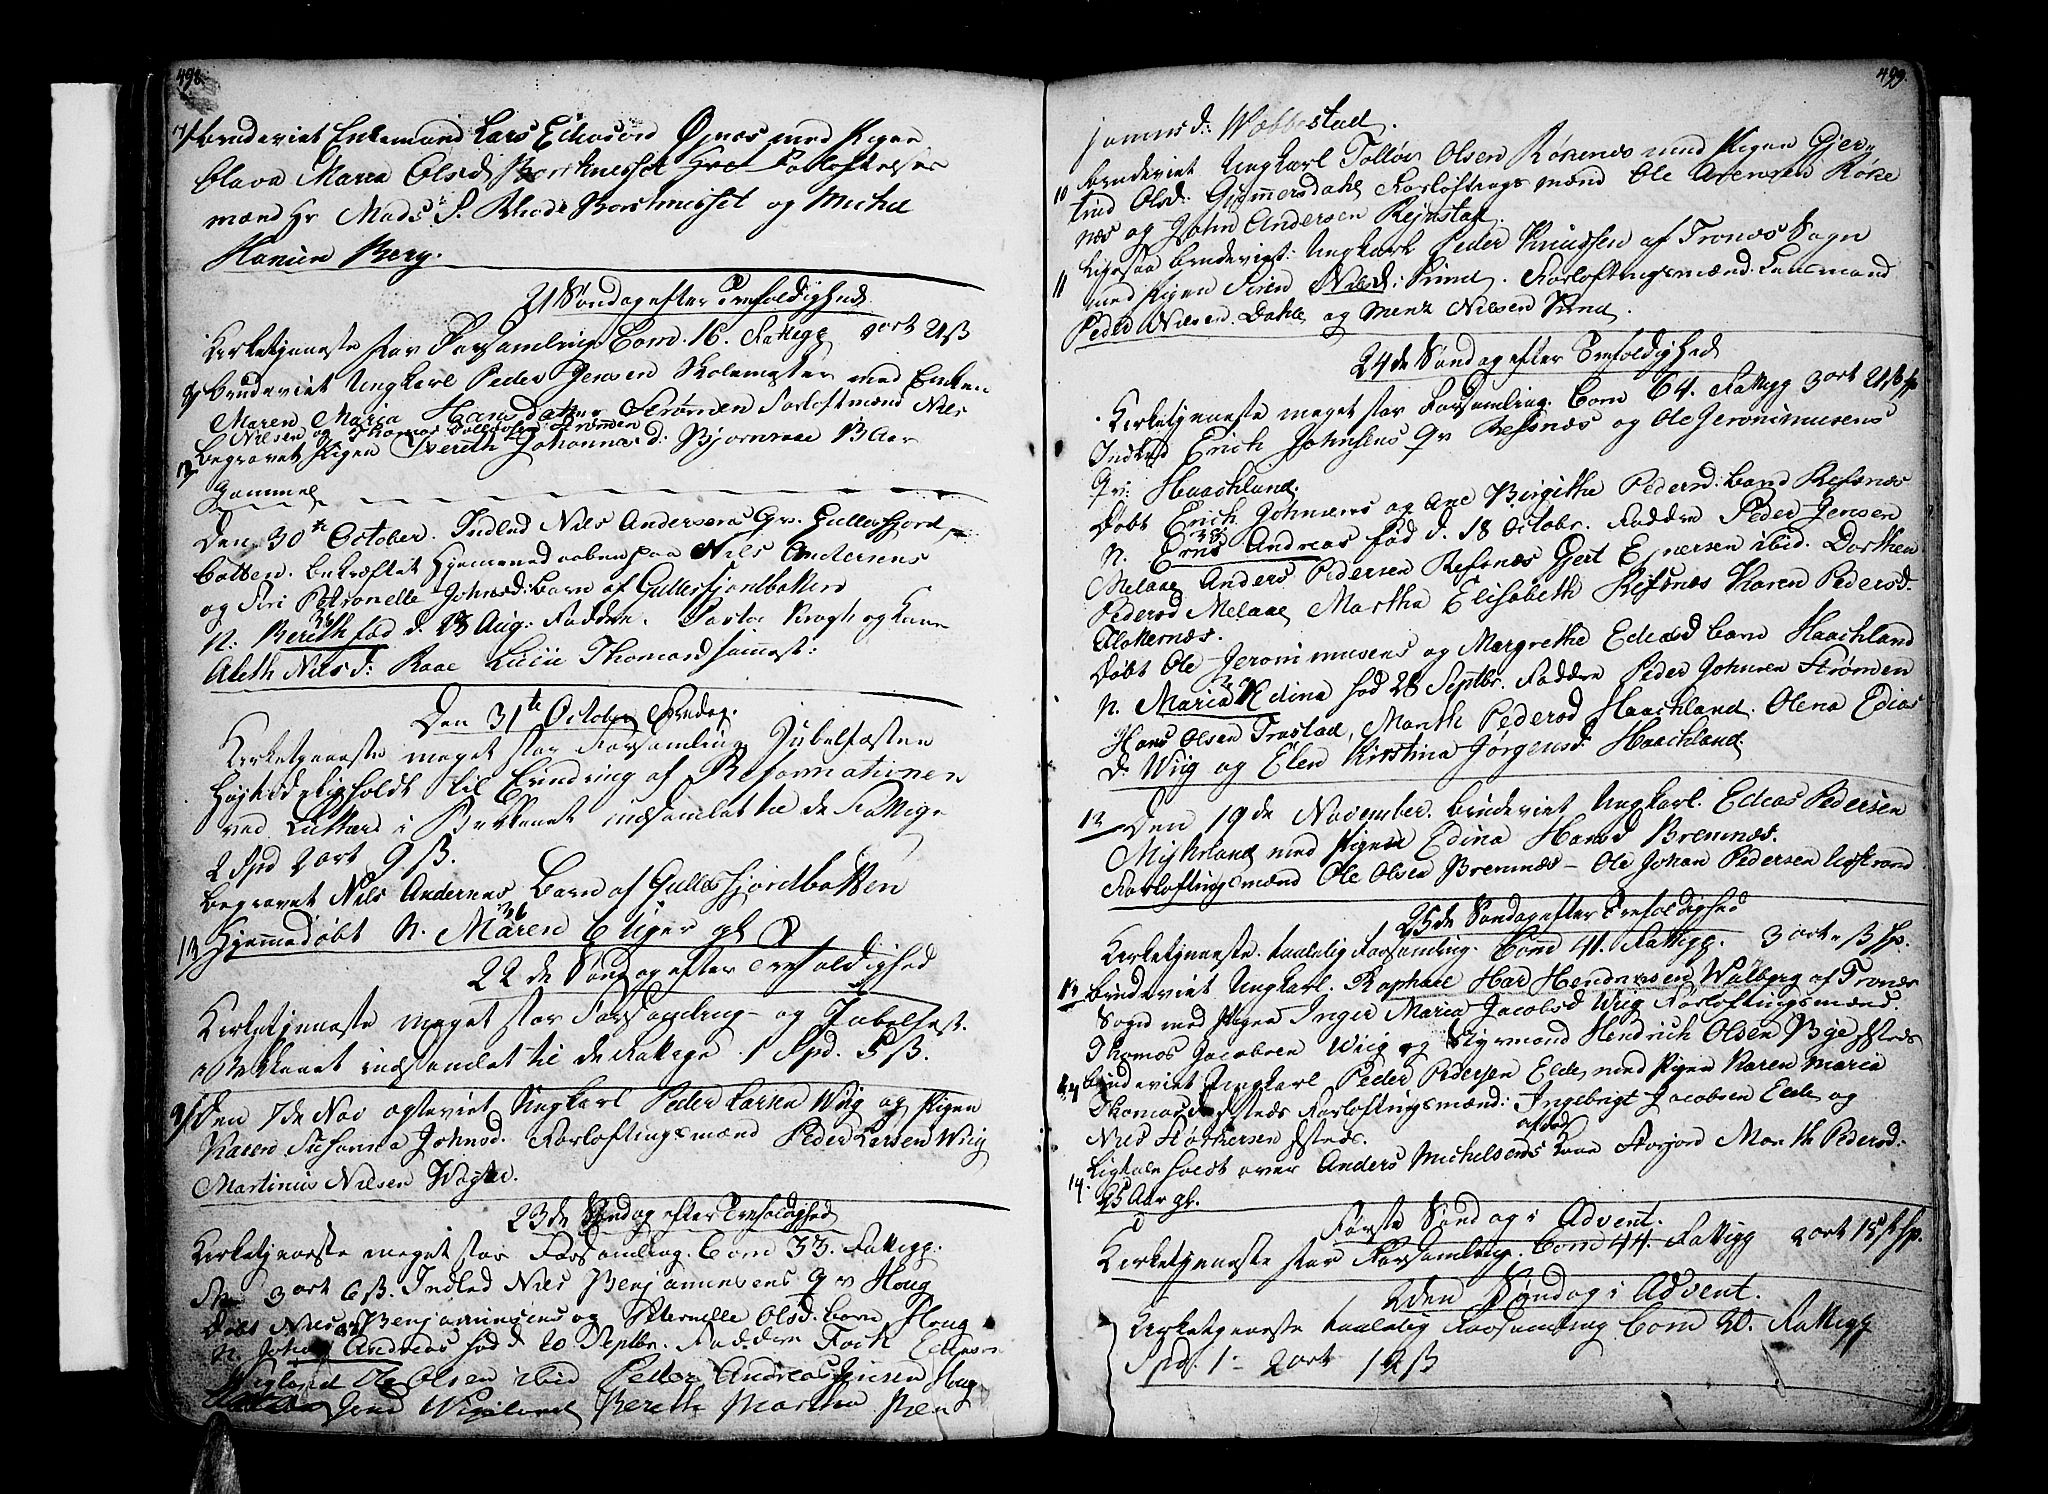 498.
7/ Brudeviet Enkemand Lars Edisøn Øjnæs med Pigen
Olava Maria Olsd Borkenesset Forloftelses
mænd Hr Mads S. Rhode Borkenesset og Michel
Hansen Berg.
21 Søndag efter Trefoldighed
Kirketjeneste stor Forsamling Com. 16. Fattigp 2 ort 21 ß
8/ Brudeviet Ungkarl Peder Jensen Skolemester med Enken
Maren Maria Hansdatter Strømen Forloftmænd Nils
Nielsen og Thomas Strømen
12 Begravet Pigen Bereth Johannesd: Bjørnraae Aar
Gammel
Den 30te October. Indled Nils Andersens Qv. Gullesfjord
botten. bekræftet Hjemmedaaben paa Nils Andersens
og Siri Petronelle Johnsd: Barn af Gullesfjordbotten
N: Bereth fød d. 28 Aug: Faddre. Pastor Krogh og Kone
Aleth Nilsd: Raae Lucie Thomasd sammest:
Den 31te October Søndag.
Kirketjeneste meget stor Forsamling Jubelfesten
Højtideligholdt til Erindring af Reformationen
ved Luther i Bekkenet indsamlet til de Fattige
2 Spd 2 ort 9 ß.
Begravet Nils Andersens Barn af Gullesfjordbotten
13 Hjemmedøbt N. Maren 6 Uger gl
22de Søndag efter Trefoldighed
Kirketjeneste meget stor Forsamling og Jubelfest.
i Bekkenet indsamlet til de Fattige 1 Spd. 5 ß.
9/ Den 7de Nov egteviet Ungkarl Peder Larsen Wiig og Pigen
Karen Susanna Johnsd. Forloftningsmænd Peder Larsen Wiig
Martinus Nielsen Wogter.
23de Søndag efter Trefoldighed
Kirketjeneste meget stor Forsamling. Com 33. Fattigp.
3 ort 6 ß. Indled Niels Benjaminsens Qv Houg
Døbt Niels Benjaminsens og Peternelle Olsd: barn Houg
N. Johan Andreas fød d 20 Septbr. Faddre Fock Ediasen
Wigeland Ole Olsen ibid Peder Andreas Jensen Houg
Wigeland Bereth Martha
499.
sammsd: Wæbbestad.
10 Brudeviet Ungkarl Tolløv Olsen Røkenæs med Pigen Gjer-
trud Olsd: Gummersdahl Forloftningsmænd Ole Arensen Røke
næs og John Andersen Rejnstad.
11 Ligesaa Brudeviet: Ungkarl Peder Knudsen af Tronæs Sogn
med Pigen Siren Nilsd: Sund. Forloftningsmænd: Lensmand
Peder Nielsen Dahl og Mentz Nielsen Sand.
24de Søndag efter Trefoldighed
Kirketjeneste meget stor Forsamling. Com 64. Fattigp 3 ort 21 ß sp
Indled Erich Johnsens Qv Refsnæs og Ole Jeronimusens
Qv: Haachland.
Døbt Erich Johnsens og Ane Birgithe Pedersd: barn Refsnæs
N. Ernst Andreas fød d. 18 Octobr. Faddre Peder Jensen
Melaae Anders Pedersen Refsnæs Gjert Ejnersen ibid. Dorthea
Pedersd Melaae Martha Elisabeth Refsnæs Karen Pedersd.
Klotternæs.
Døbt Ole Jeronimusens og Margrethe Ediasd barn Haachland
N. Maria Edina fød 28 Septbr. Faddre Peder Johnsen Strømen
Hans Olsen Trastad, Marith Pedersd Haachland. Olena Edias
d. Wiig og Elen Kirstina Jørgensd. Haachland.
12 Den 19de November. Brudeviet Ungkarl. Edias Pedersen
Mikkeland med Pigen Edina Hansd Bremnæs.
Forloftningsmænd Ole Olsen Bremnæs – Ole Johan Pedersen
25de Søndag efter Trefoldighed
Kirketjeneste. taalelig Forsamling. Com 41. Fattigp. 3 ort – ß sp.
13 Brudeviet Ungkarl. Raphael Har Hendricsen Walberg af Tronæs
Sogn med Pigen Inger Maria Jacobsd Wiig Forloftningsmænd.
Thomas Jacobsen Wiig og Styrmand Hendrich Olsen Bye
14 Brudeviet Ungkarl Peder Pedersen Elde, med Pigen Karen Maria
Thomasd Forloftningsmænd: Ingebrigt Jacobsen Elde og
Niels
14. Ligtale holdt over Anders Michelsens afdød Kone Storjord Marith Pedersd.
25 Aar gl.
Første Søndag i Advent.
Kirketjeneste stor Forsamling. Com 44. Fattigp 2 ort 18 ß sp.
2den Søndag i Advent.
Kirketjeneste taalelig Forsamling Com 20. Fattigp
Spd. 1 – 2 ort 12 ß